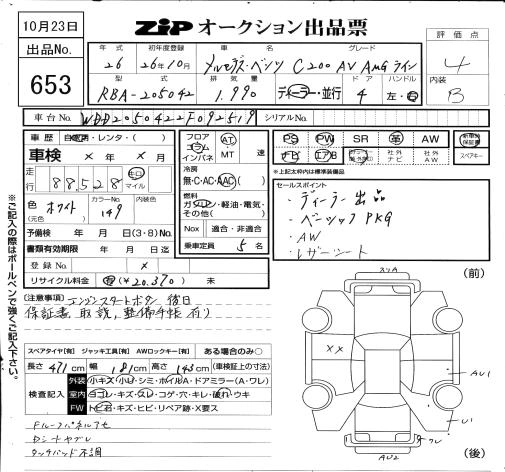 10月23日
出品No.
653
ZiP オークション出品票
評価点
4
内装
B
年式 初年度登録 車名 グレード
26 26年10月 メルセデス・ベンツ C200 AV AMG ライン
型式 排気量 ドア ハンドル
RBA-205042 1,990 ディーラー・並行 4 左・右
車台No. WDD2050422F092519 シリアルNo.
車歴 自家用・レンタ・( )
車検 × 年 × 月
走行 88,528 km マイル
色 (元色) ホワイト カラーNo. 149 内装色
予備検 年 月 日(3・8)No.
書類有効期限 年 月 日迄
登録No. ×
リサイクル料金 有(¥20,370) 未
フロア コラム インパネ AT MT 速
冷房 無・C・AC・AAC
燃料 ガソリン・軽油・電気・その他( )
Nox 適合・非適合
乗車定員 5 名
PS PW SR 革 AW 新車時保証書
ナビ エアB ナビ 社外ナビ 社外AW スペアキー
※上記太枠内は標準装備品
セールスポイント
・ディーラー出品
・ベーシックPKG
・AW
・レザーシート
※ご記入の際はボールペンで強くご記入下さい。
注意事項 エンジンスタートボタン 後日
保証書、取説、整備手帳有り
スペアタイヤ[有] ジャッキ工具[有] AWロックキー[有] ある場合のみ○
長さ 471 cm 幅 181 cm 高さ 143 cm (車検証上の寸法)
検査記入
外装 小キズ・小凹・シミ・ホイルA・ドアミラー(A・ワレ)
室内 ヨゴレ・キズ・スレ・コゲ・穴・キレ・破れ・ウキ
FW トビ石・キズ・ヒビ・リペア跡・X要ス
Fルーフパネルアセ
Dシートヤブレ
タッチパッド不調
(前)
××
AU1
U1
ワレ
AU2
(後)